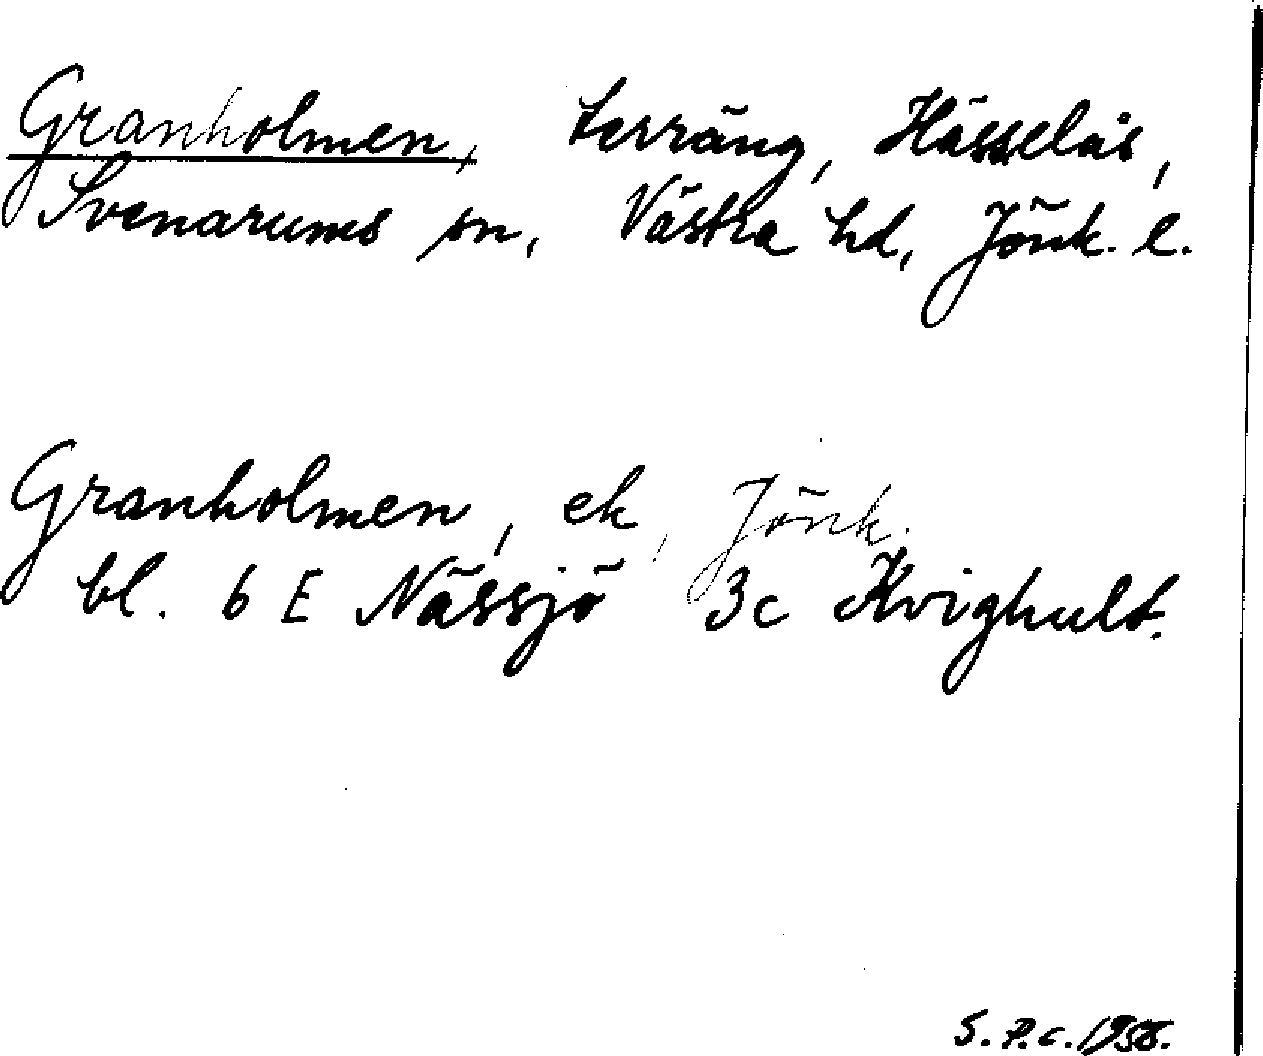 Granholmen, terräng, Hässelås,
Svenarums sn, Västra hd, Jönk. l.
Granholmen, ek, Jönk.
bl. 6 E Nässjö 3c Kvighult.
S. P. C. 1958.